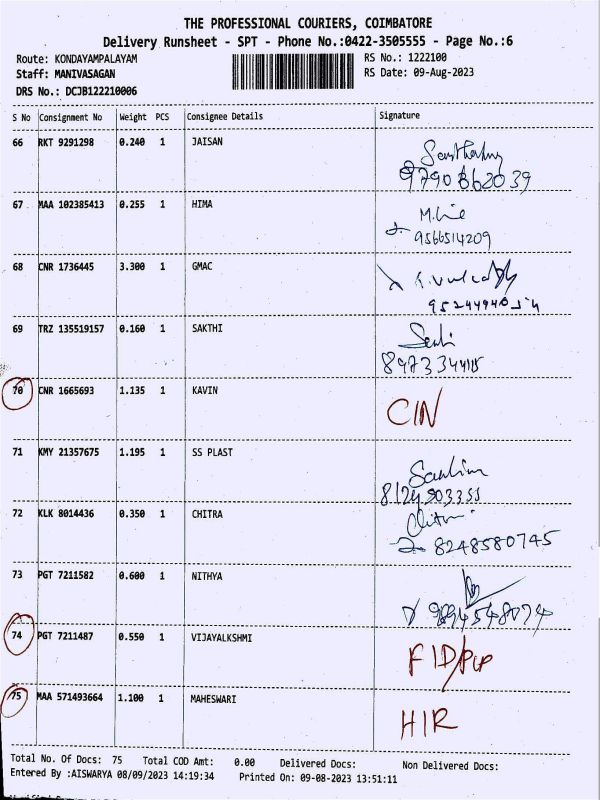 THE PROFESSIONAL COURIERS, COIMBATORE
Delivery Runsheet - SPT - Phone No.:0422-3505555 - Page No.:6
Route: KONDAYAMPALAYAM RS No.: 1222100
Staff: MANIVASAGAN RS Date: 09-Aug-2023
DRS No.: DCJB122210006
S No Consignment No Weight PCS Consignee Details Signature
66 RKT 9291298 0.240 1 JAISAN
9790862039
67 MAA 102385413 0.255 1 HIMA
9566514209
68 CNR 1736445 3.300 1 GMAC
69 TRZ 135519157 0.160 1 SAKTHI
70 CNR 1665693 1.135 1 KAVIN CIN
71 KMY 21357675 1.195 1 SS PLAST
8124903355
72 KLK 8014436 0.350 1 CHITRA
8248580745
73 PGT 7211582 0.600 1 NITHYA
9894548074
74 PGT 7211487 0.550 1 VIJAYALKSHMI
75 MAA 571493664 1.100 1 MAHESWARI HIR
Total No. Of Docs: 75 Total COD Amt: 0.00 Delivered Docs: Non Delivered Docs:
Entered By :AISWARYA 08/09/2023 14:19:34 Printed On: 09-08-2023 13:51:11